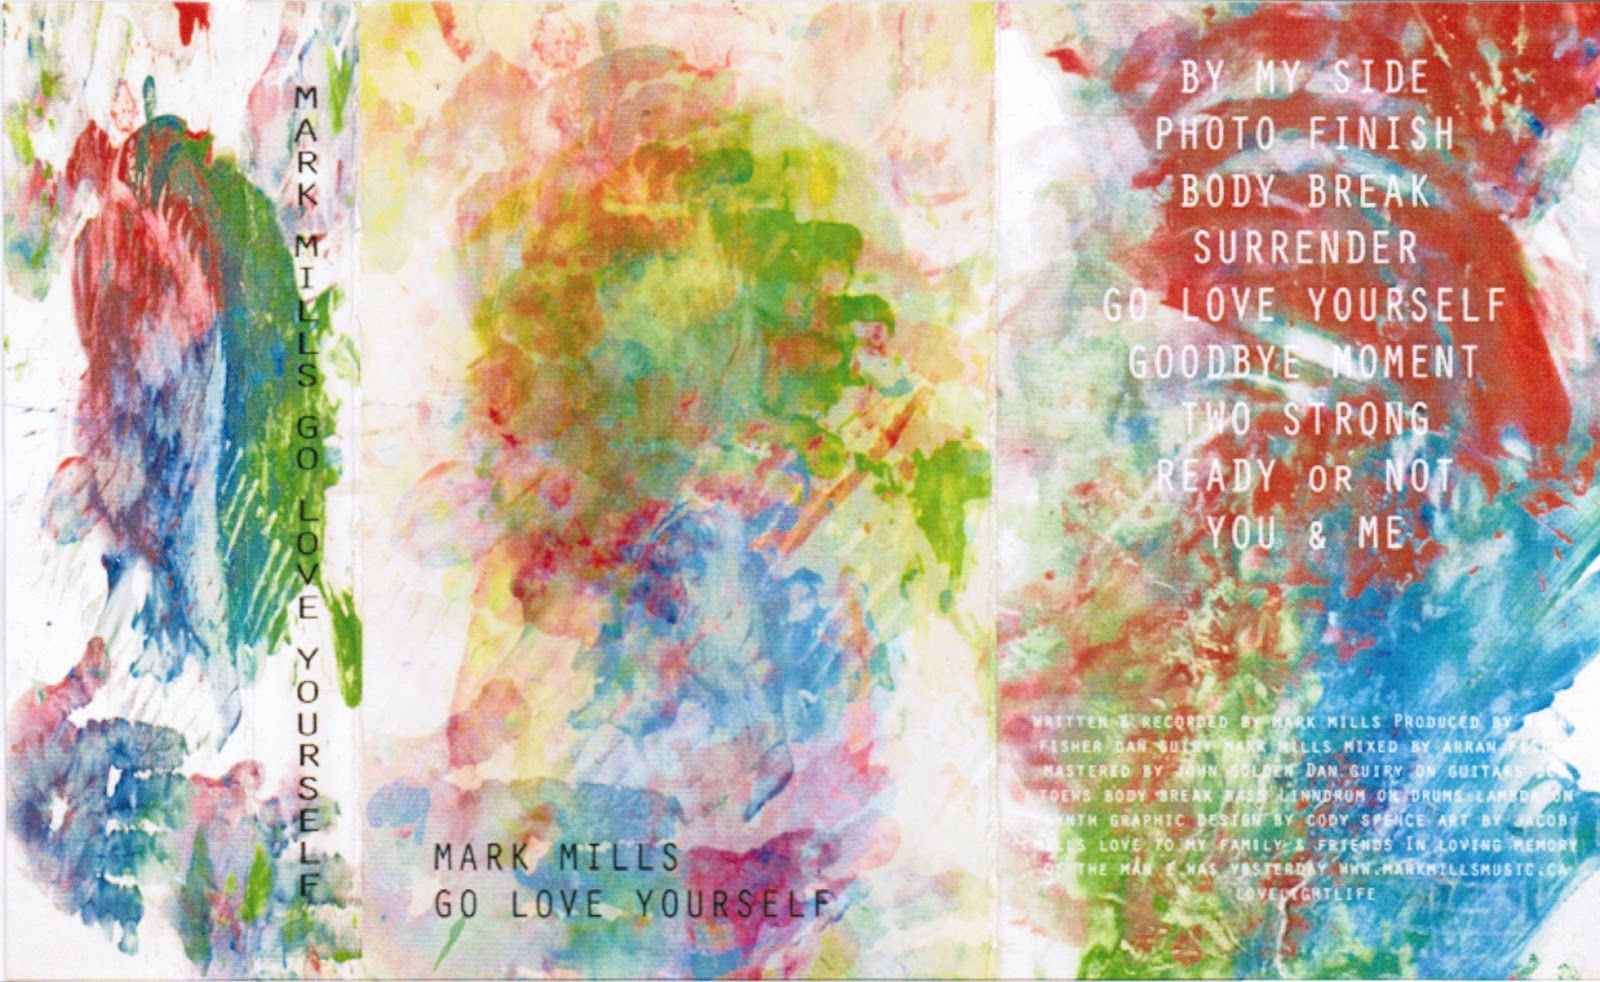 MARK MILLS GO LOVE YOURSELF
MARK MILLS
GO LOVE YOURSELF
BY MY SIDE
PHOTO FINISH
BODY BREAK
SURRENDER
GO LOVE YOURSELF
GOODBYE MOMENT
TWO STRONG
READY OR NOT
YOU & ME
WRITTEN & RECORDED BY MARK MILLS PRODUCED BY
FISHER DAN GUIRY MARK MILLS MIXED BY ARRAN
MASTERED BY JOHN GOLDEN DAN GUIRY ON GUITARS
TOEWS BODY BREAK BASS LINNDRUM ON DRUMS LAMBDA ON
SYNTH GRAPHIC DESIGN BY CODY SPENCE ART BY JACOB
MILLS LOVE TO MY FAMILY & FRIENDS IN LOVING MEMORY
OF THE MAN I WAS YESTERDAY WWW.MARKMILLSMUSIC.CA
LOVELIGHTLIFE